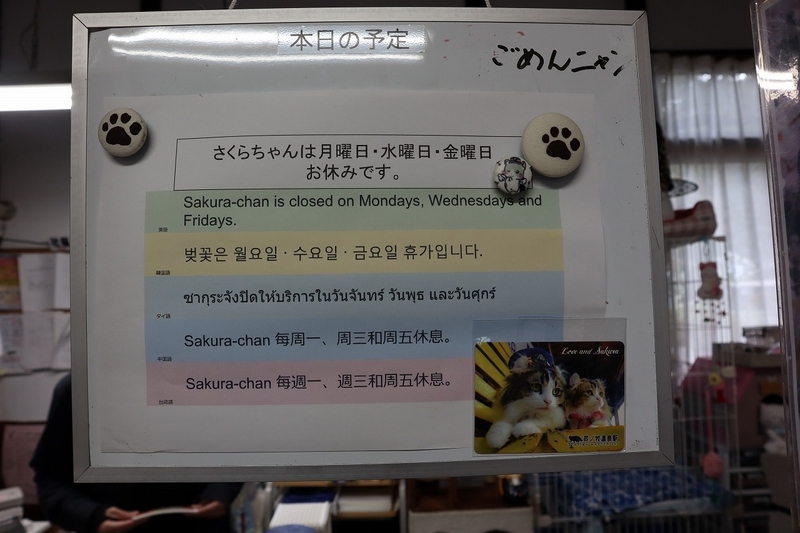 本日の予定
ごめんニャン
さくらちゃんは月曜日・水曜日・金曜日
お休みです。
Sakura-chan is closed on Mondays, Wednesdays and
Fridays.
英語
벚꽃은 월요일 · 수요일 · 금요일 휴가입니다.
韓国語
ซากุระจังปิดให้บริการในวันจันทร์ วันพุธ และวันศุกร์
タイ語
Sakura-chan 毎周一、周三和周五休息。
中国語
Sakura-chan 毎週一、週三和周五休息。
台湾語
Love and Sakura
芦ノ牧温泉駅